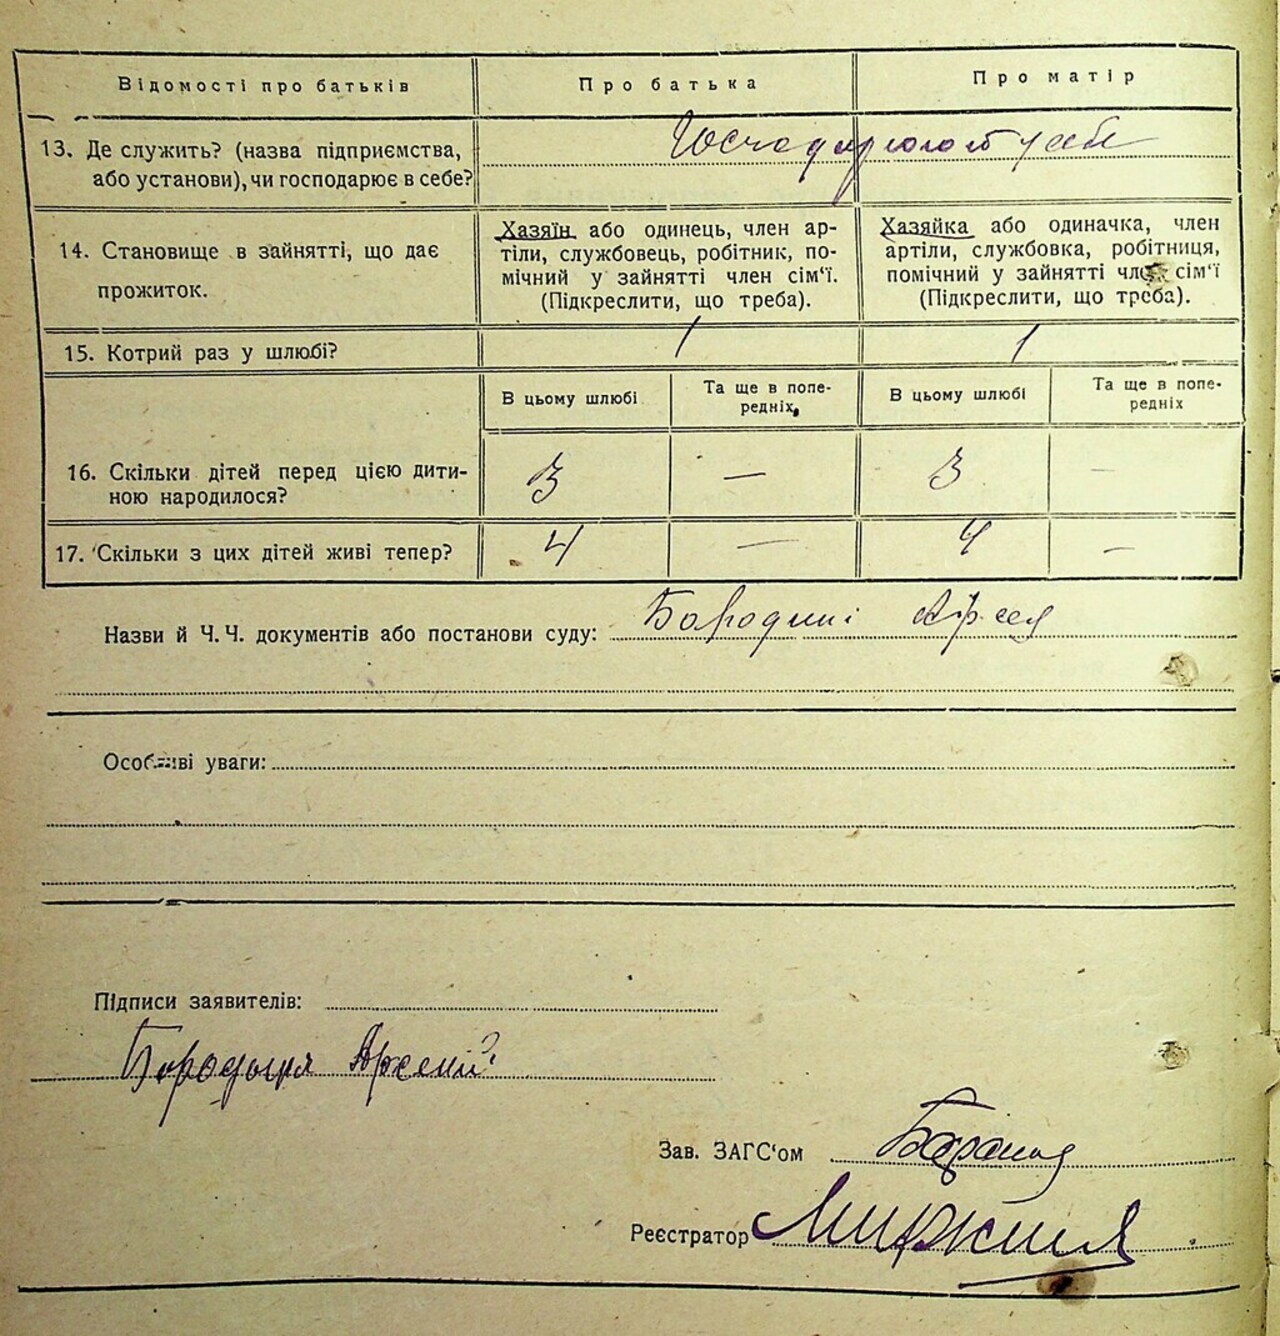 Відомості про батьків
Про батька
Про матір
13. Де служить? (назва підприємства,
або установи), чи господарює в себе?
14. Становище в зайнятті, що дає
прожиток.
Хазяїн або одинець, член ар-
тіли, службовець, робітник, по-
мічний у зайнятті член сім'ї.
(Підкреслити, що треба).
Хазяйка або одиначка, член
артіли, службовка, робітниця,
помічний у зайнятті член сім'ї
(Підкреслити, що треба).
15. Котрий раз у шлюбі?
1
1
В цьому шлюбі
Та ще в попе-
редніх
В цьому шлюбі
Та ще в попе-
редніх
16. Скільки дітей перед цією дити-
ною народилося?
3 — 3 —
17. Скільки з цих дітей живі тепер?
4 — 4 —
Назви й Ч. Ч. документів або постанови суду:
Особливі уваги:
Підписи заявителів:
Арсеній
Зав. ЗАГС'ом
Реєстратор